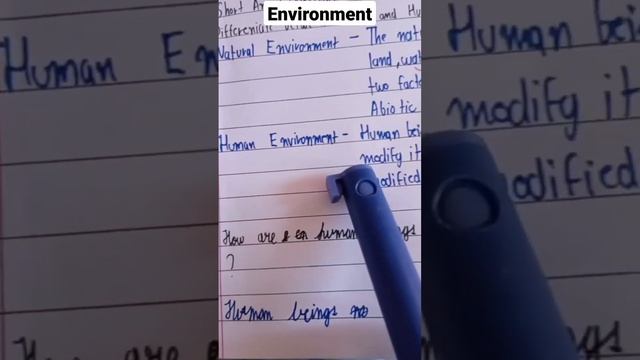 Environment
Short
Differenciate and Hu
Natural Environment - The nat
land, wat
two facto
Abiotic
Human Environment - Human bei
modify it
modified
How are human
?
Human beings